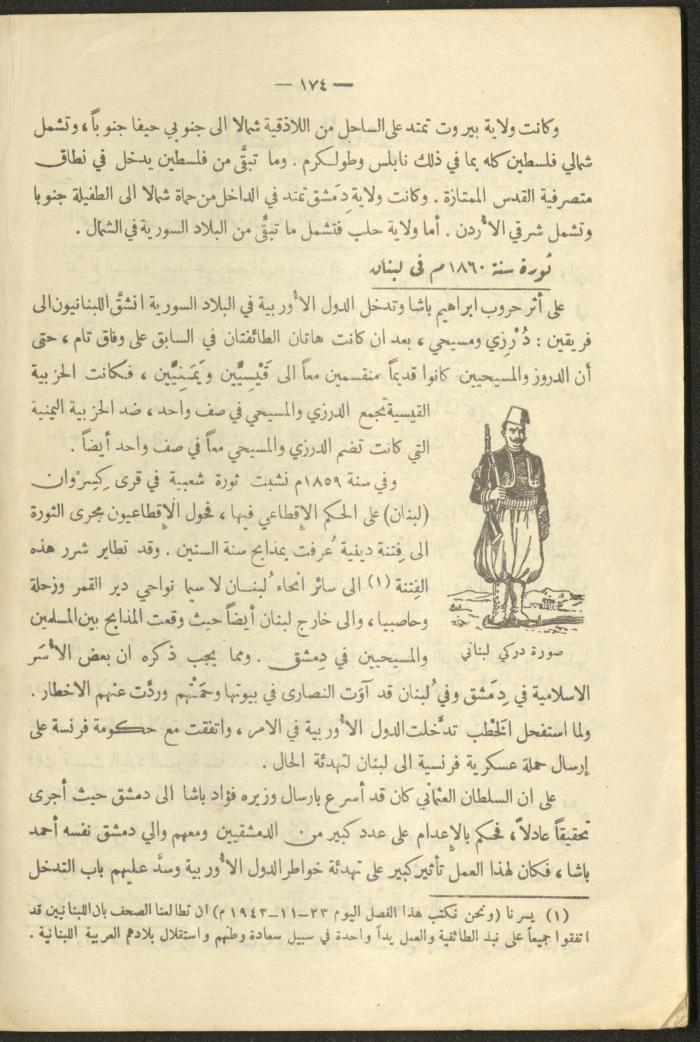 — ١٧٤ —
وكانت ولاية بيروت تمتد على الساحل من اللاذقية شمالا الى جنوبي حيفا جنوباً، وتشمل
شمالي فلسطين كله بما في ذلك نابلس وطولكرم . وما تبقَّى من فلسطين يدخل في نطاق
متصرفية القدس الممتازة . وكانت ولاية دِمَشق تمتد في الداخل من حماة شمالا الى الطفيلة جنوبا
وتشمل شرقي الأُردن . أما ولاية حلب فتشمل ما تبقَّى من البلاد السورية في الشمال .
ثورة سنة ١٨٦٠م في لبنان
على أثر حروب ابراهيم باشا وتدخل الدول الأُوربية في البلاد السورية انشقَّ اللبنانيون الى
فريقين : دُرْزِي ومسيحي ، بعد ان كانت هاتان الطائفتان في السابق على وفاق تام ، حتى
أن الدروز والمسيحيين كانوا قديماً منقسمين معاً الى قَيْسِيِّين ويَمَنِيِّين ، فكانت الحزبية
القيسية تجمع الدرزي والمسيحي في صف واحد ، ضد الحزبية اليمنية
التي كانت تضم الدرزي والمسيحي معاً في صف واحد أيضاً .
وفي سنة ١٨٥٩م نشبت ثورة شعبية في قرى كِسِرْوان
(لبنان) على الحكم الإقطاعي فيها ، فحول الإقطاعيون مجرى الثورة
الى فِتنة دينية عُرفت بمذابح سنة الستين . وقد تطاير شرر هذه
الفِتنة (١) الى سائر انحاء لُبنان لا سيما نواحي دير القمر وزحلة
وحاصبيا ، والى خارج لبنان أيضاً حيث وقعت المذابح بين المسلمين
والمسيحيين في دِمشق . ومما يجب ذكره ان بعض الأُسَر
صورة دركي لبناني
الاسلامية في دِمَشق وفي لُبنان قد آوَت النصارى في بيوتها وحمَتْهم وردَّت عنهم الاخطار .
ولما استفحل الخَطْب تدخَّلت الدول الأُوربية في الامر ، واتفقت مع حكومة فرنسة على
إرسال حملة عسكرية فرنسية الى لبنان لتهدئة الحال .
على ان السلطان العثماني كان قد أسرع بارسال وزيره فؤاد باشا الى دمشق حيث أجرى
تحقيقاً عادلاً ، فحكم بالإعدام على عدد كبير من الدمشقيين ومعهم والي دمشق نفسه أحمد
باشا ، فكان لهذا العمل تأثير كبير على تهدئة خواطر الدول الأُوربية وسدَّ عليهم باب التدخل
(١) يسرنا (ونحن نكتب هذا الفصل اليوم ٢٣-١١-١٩٤٣ م) ان تطالعنا الصحف بان اللبنانيين قد
اتفقوا جميعاً على نبذ الطائفية والعمل يداً واحدة في سبيل سعادة وطنهم واستقلال بلادهم العربية اللبنانية .